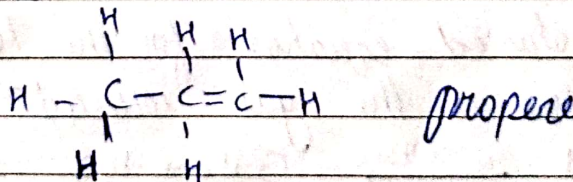 H H H
H - C - C = C - H propene
H H